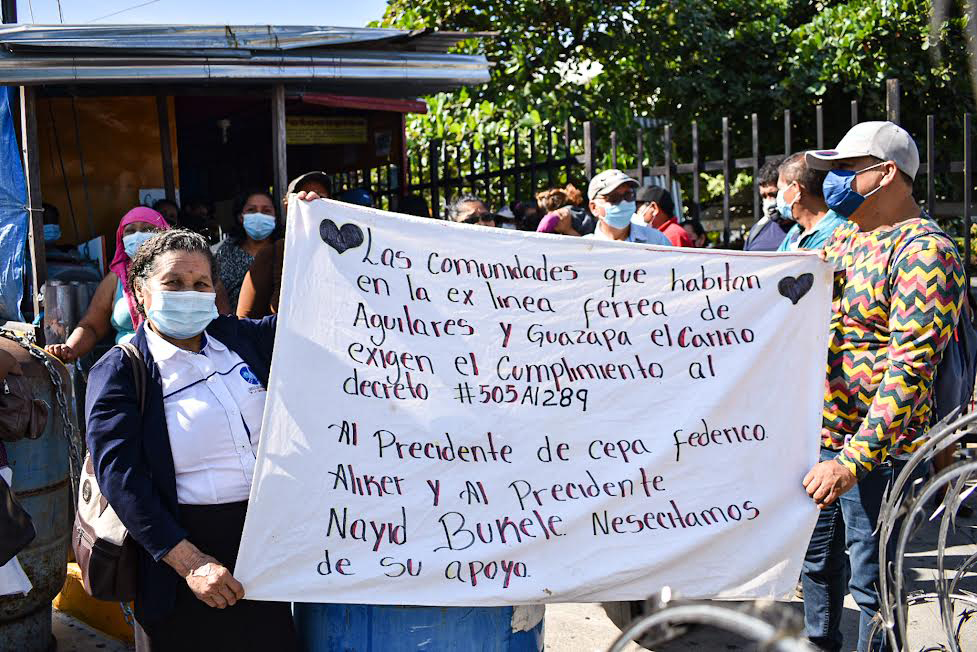 Las Comunidades que habitan
en la ex linea ferrea de
Aguilares y Guazapa el Cariño
exigen el Cumplimiento al
decreto #505 Al 289
Al Precidente de cepa federico.
Aliker y Al Precidente
Nayid Bukele. Nesecitamos
de su apoyo.